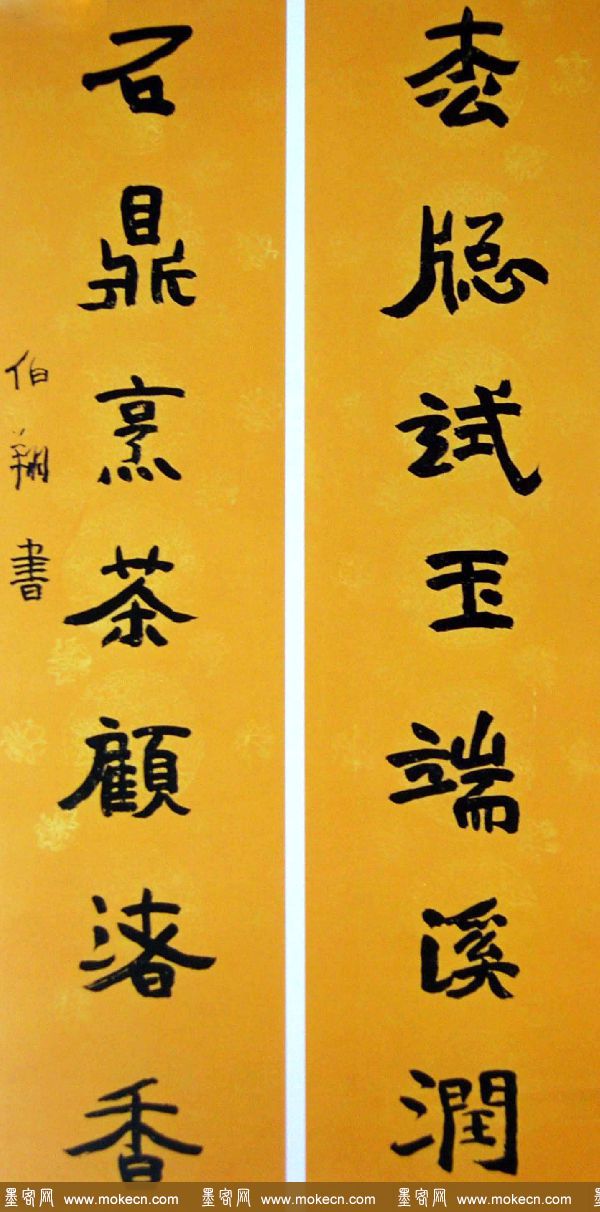 枩牕試玉端溪潤
石鼎烹茶顧渚香
伯翔書
墨客网 www.mokecn.com 墨客网 www.mokecn.com 墨客网 www.mokecn.com